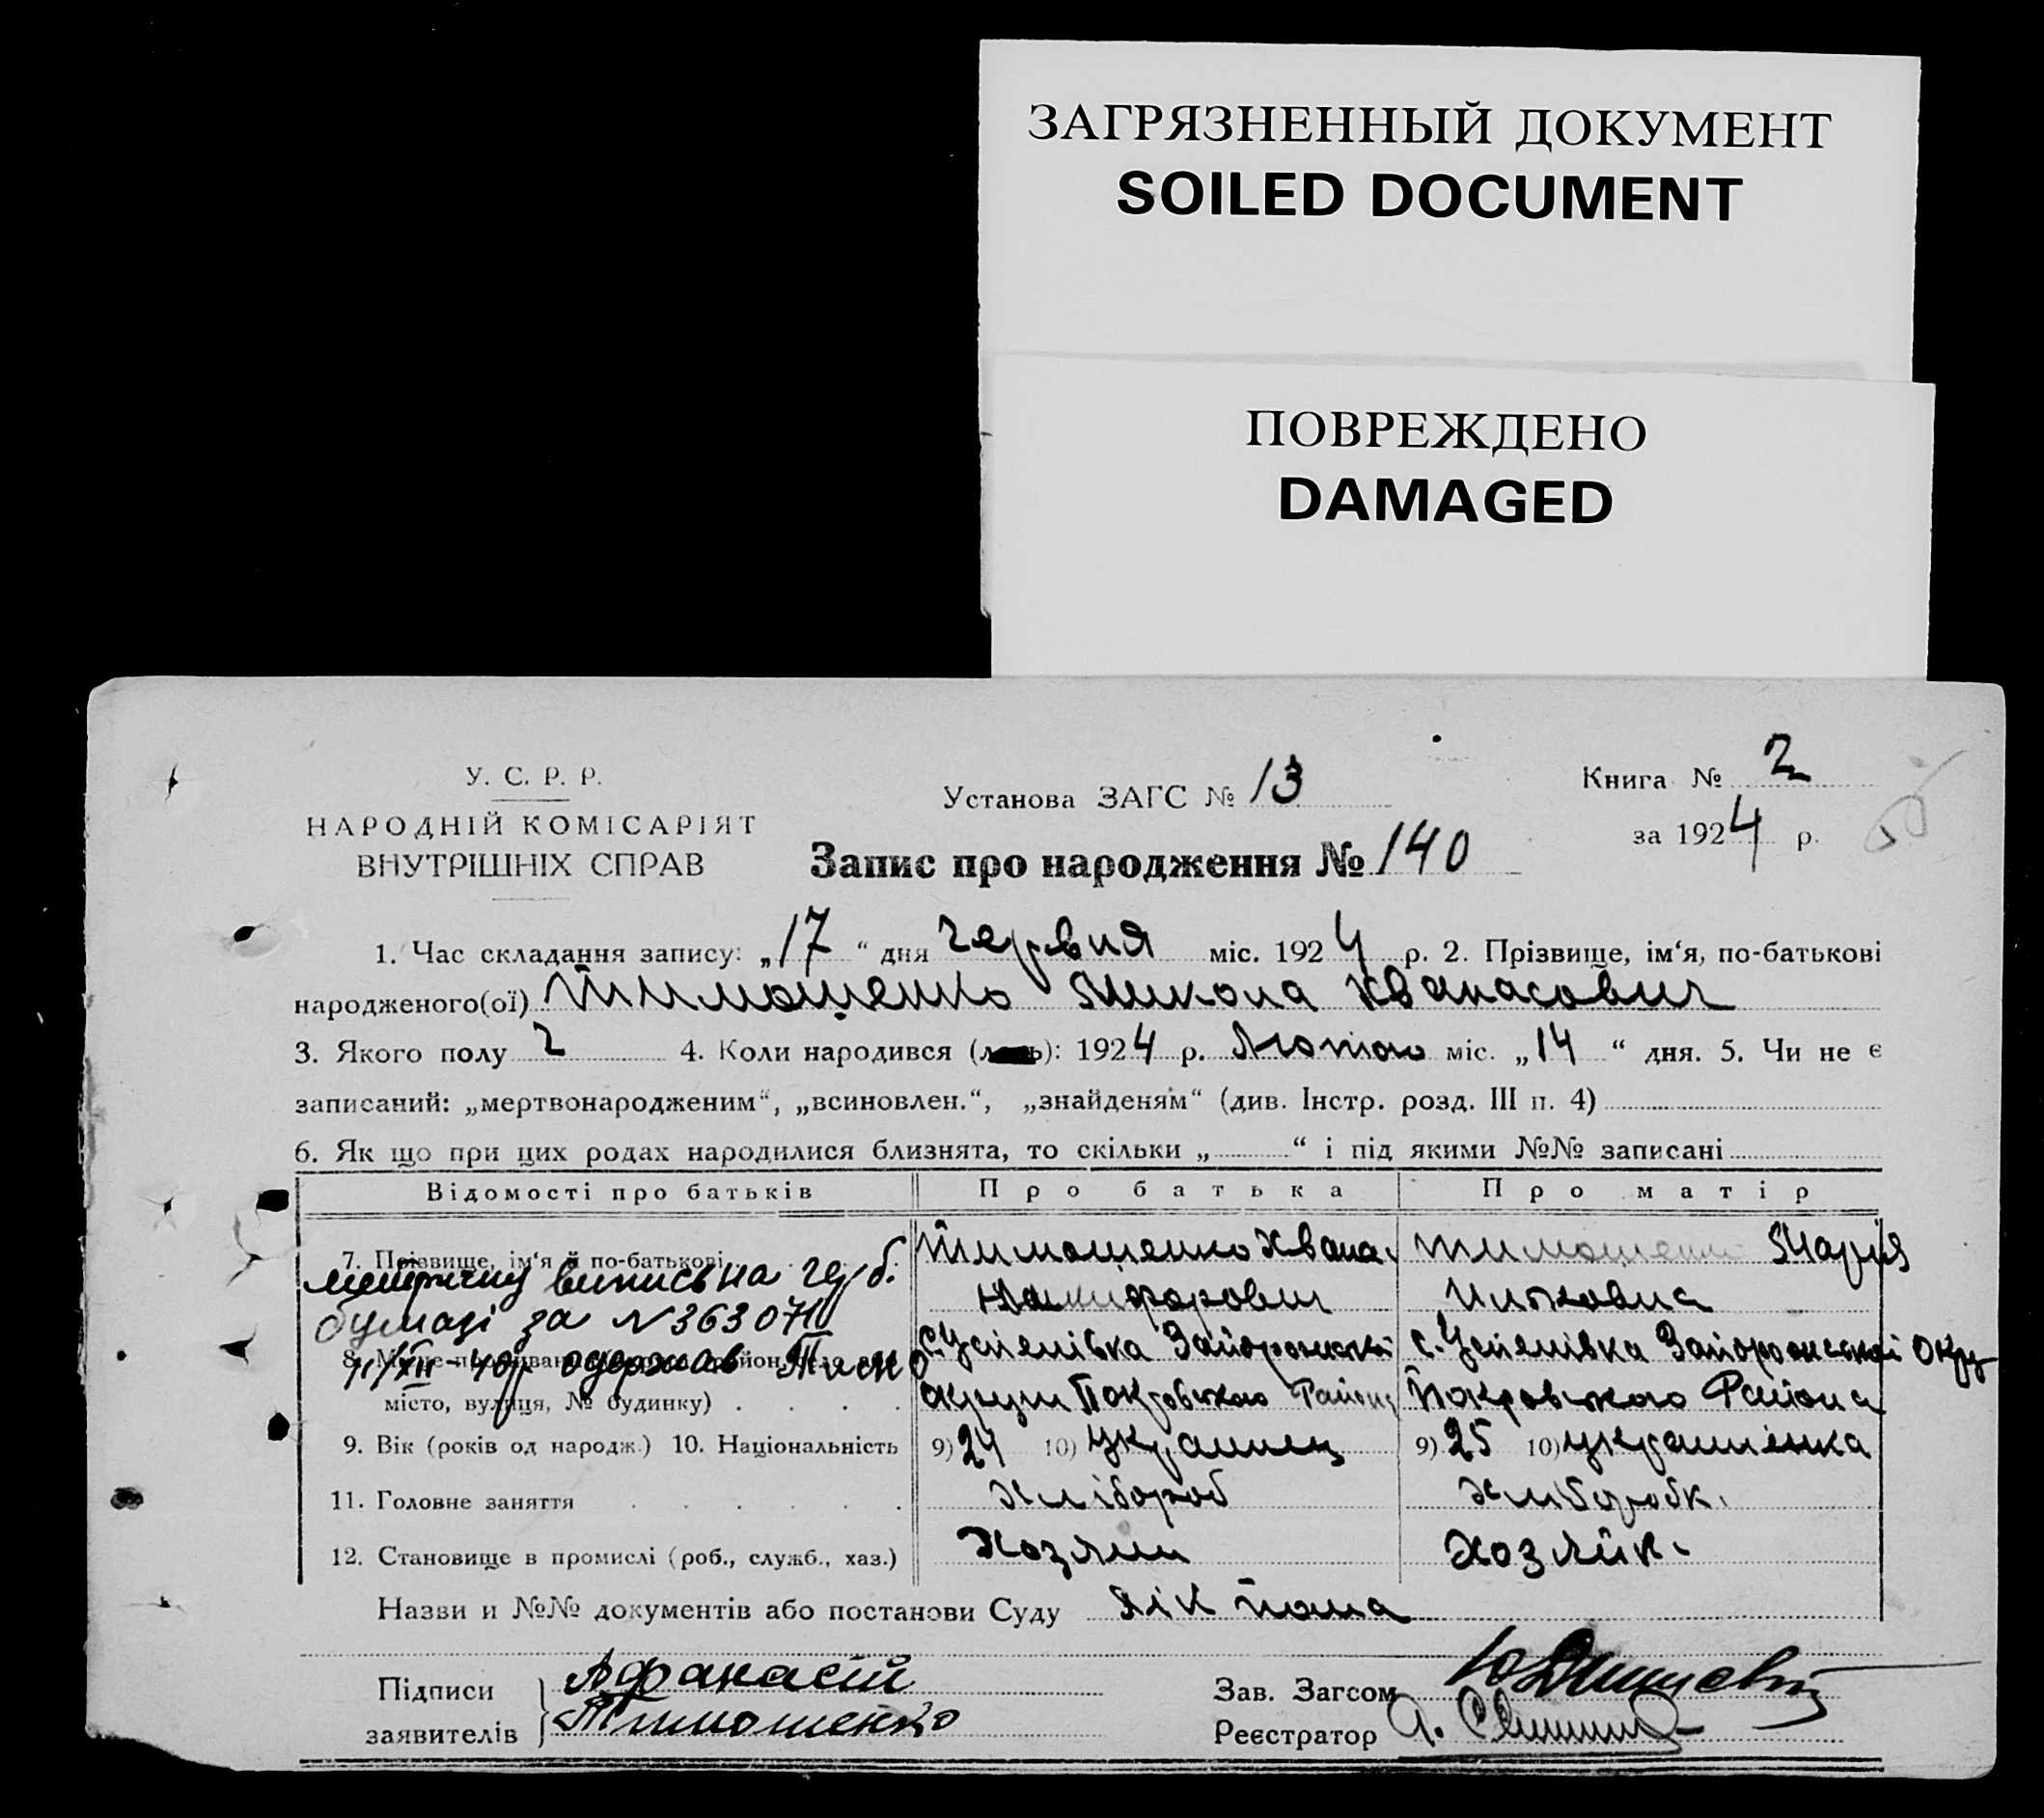 ЗАГРЯЗНЕННЫЙ ДОКУМЕНТ
SOILED DOCUMENT
ПОВРЕЖДЕНО
DAMAGED
У. С. Р. Р.
НАРОДНІЙ КОМІСАРІЯТ
ВНУТРІШНІХ СПРАВ
Установа ЗАГС № 13
Книга № 2
за 1924 р.
Запис про народження № 140
1. Час складання запису: „17“ дня червня міс. 1924 р. 2. Прізвище, ім‘я, по-батькові
народженого(ої) Тимошенко Микола Хванасович
3. Якого полу ч 4. Коли народився (лась): 1924 р. Лютого міс. „14“ дня. 5. Чи не є
записаний: „мертвонародженим“, „всиновлен.“, „знайденям“ (див. Інстр. розд. III п. 4)
6. Як що при цих родах народилися близнята, то скільки „ “ і під якими №№ записані
Відомості про батьків Про батька Про матір
7. Прізвище, ім‘я й по-батькові Тимошенко Хвана. Тимошенко Марія
метричну випись на герб. Никифорович
бумазі за N 363071
с. Успенівка Запорожської с. Успенівка Запорожської Окру
11/XII-40р одержав
місто, вулиця, № будинку) округи Покровського Району Покровського Району
9. Вік (років од народж.) 10. Національність 9) 24 10) Українец 9) 25 10) українка
11. Головне заняття Хлібороб Хліборобк.
12. Становище в промислі (роб., служб., хаз.) Хозяин Хозяйк.
Назви и №№ документів або постанови Суду
Підписи Афанасій
заявителів Тимошенко
Зав. Загсом
Реєстратор